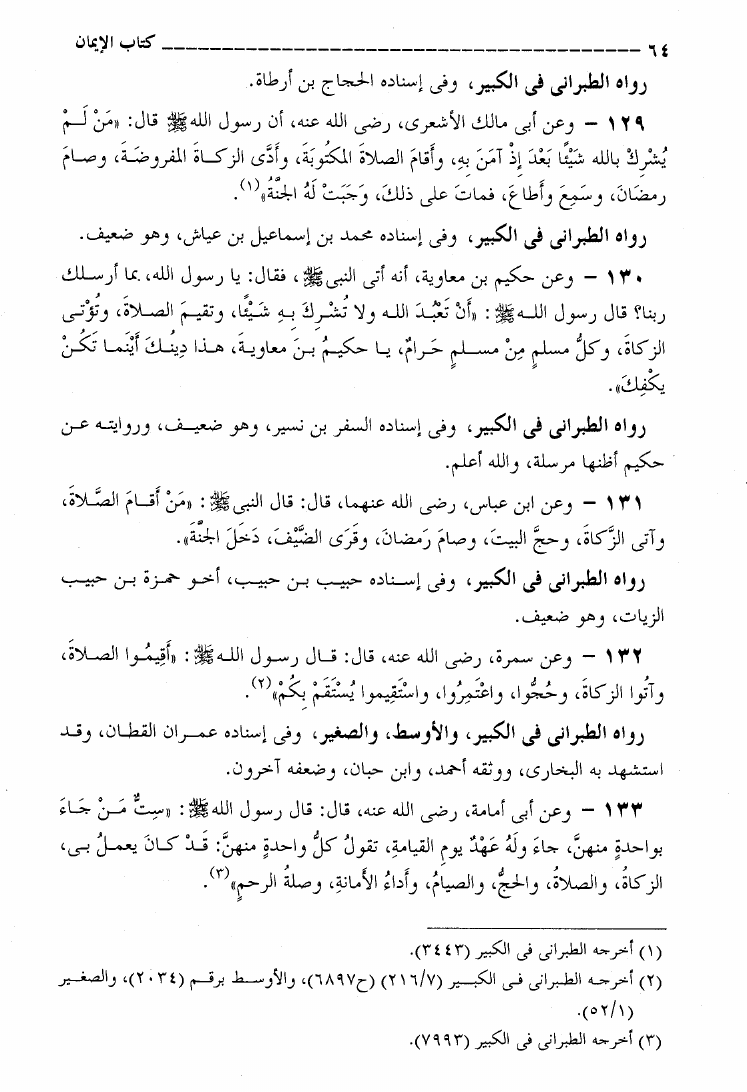 ٦٤ ــــــــــــــــــــــــــــــــــــــــــــــ كتاب الإيمان
رواه الطبرانى فى الكبير، وفى إسناده الحجاج بن أرطاة.
١٢٩ – وعن أبى مالك الأشعرى، رضى الله عنه، أن رسول الله ﷺ قال: «مَنْ لَـمْ
يُشْرِكْ بالله شَيْئًا بَعْدَ إِذْ آمَنَ بِهِ، وأَقامَ الصلاةَ المكتُوبَةَ، وأَدَّى الزكـاةَ المفروضـةَ، وصـامَ
رمضَانَ، وسَمِعَ وأَطاعَ، فماتَ على ذلكَ، وَجَبَتْ لَهُ الجنَّةُ»(١).
رواه الطبرانى فى الكبير، وفى إسناده محمد بن إسماعيل بن عياش، وهو ضعيف.
١٣٠ – وعن حكيم بن معاوية، أنه أتى النبى ﷺ، فقال: يا رسول الله، بما أرسـلك
ربنا؟ قال رسول اللـه ﷺ: «أَنْ تَعْبُـدَ اللـه ولا تُشْـرِكَ بـهِ شَـيْئًا، وتقيـمَ الصـلاةَ، وتُؤْتـى
الزكاةَ، وكلُّ مسلمٍ مِنْ مسـلمٍ حَرامٌ، يـا حكيـمُ بـنَ معاويـةَ، هـذا دِينُـكَ أَيْنَمـا تَكُـنْ
يكْفِكَ».
رواه الطبرانى فى الكبير، وفى إسناده السفر بن نسير، وهو ضعيـف، وروايتـه عـن
حكيم أظنها مرسلة، والله أعلم.
١٣١ – وعن ابن عباس، رضى الله عنهما، قال: قال النبى ﷺ: «مَنْ أَقـامَ الصَّـلاةَ،
وآتى الزَّكاةَ، وحجَّ البيتَ، وصامَ رَمضانَ، وقَرَى الضَّيْفَ، دَخَلَ الجنَّةَ».
رواه الطبرانى فى الكبير، وفى إسـناده حبيـب بـن حبيـب، أخـو حمـزة بـن حبيـب
الزيات، وهو ضعيف.
١٣٢ – وعن سمرة، رضى الله عنه، قال: قـال رسـول اللـه ﷺ: «أَقِيمُـوا الصـلاةَ،
وآتُوا الزكاةَ، وحُجُّوا، واعْتَمِرُوا، واسْتَقِيموا يُسْتَقَمْ بِكُمْ»(٢).
رواه الطبرانى فى الكبير، والأوسط، والصغير، وفى إسناده عمـران القطـان، وقـد
استشهد به البخارى، ووثقه أحمد، وابن حبان، وضعفه آخرون.
١٣٣ – وعن أبى أمامة، رضى الله عنه، قال: قال رسول الله ﷺ: «سِتٌّ مَـنْ جَـاءَ
بواحدةٍ منهنَّ، جاءَ ولَهُ عَهْدٌ يومِ القيامةِ، تقولُ كلُّ واحدةٍ منهنَّ: قَـدْ كـانَ يعمـلُ بـى،
الزكاةُ، والصلاةُ، والحجُّ، والصيامُ، وأَداءُ الأَمانةِ، وصلةُ الرحمِ»(٣).
(١) أخرجه الطبرانى فى الكبير (٣٤٤٣).
(٢) أخرجـه الطـبرانى فـى الكبـير (٢١٦/٧) (ح٦٨٩٧)، والأوسـط برقـم (٢٠٣٤)، والصغـير
(٥٢/١).
(٣) أخرجه الطبرانى فى الكبير (٧٩٩٣).